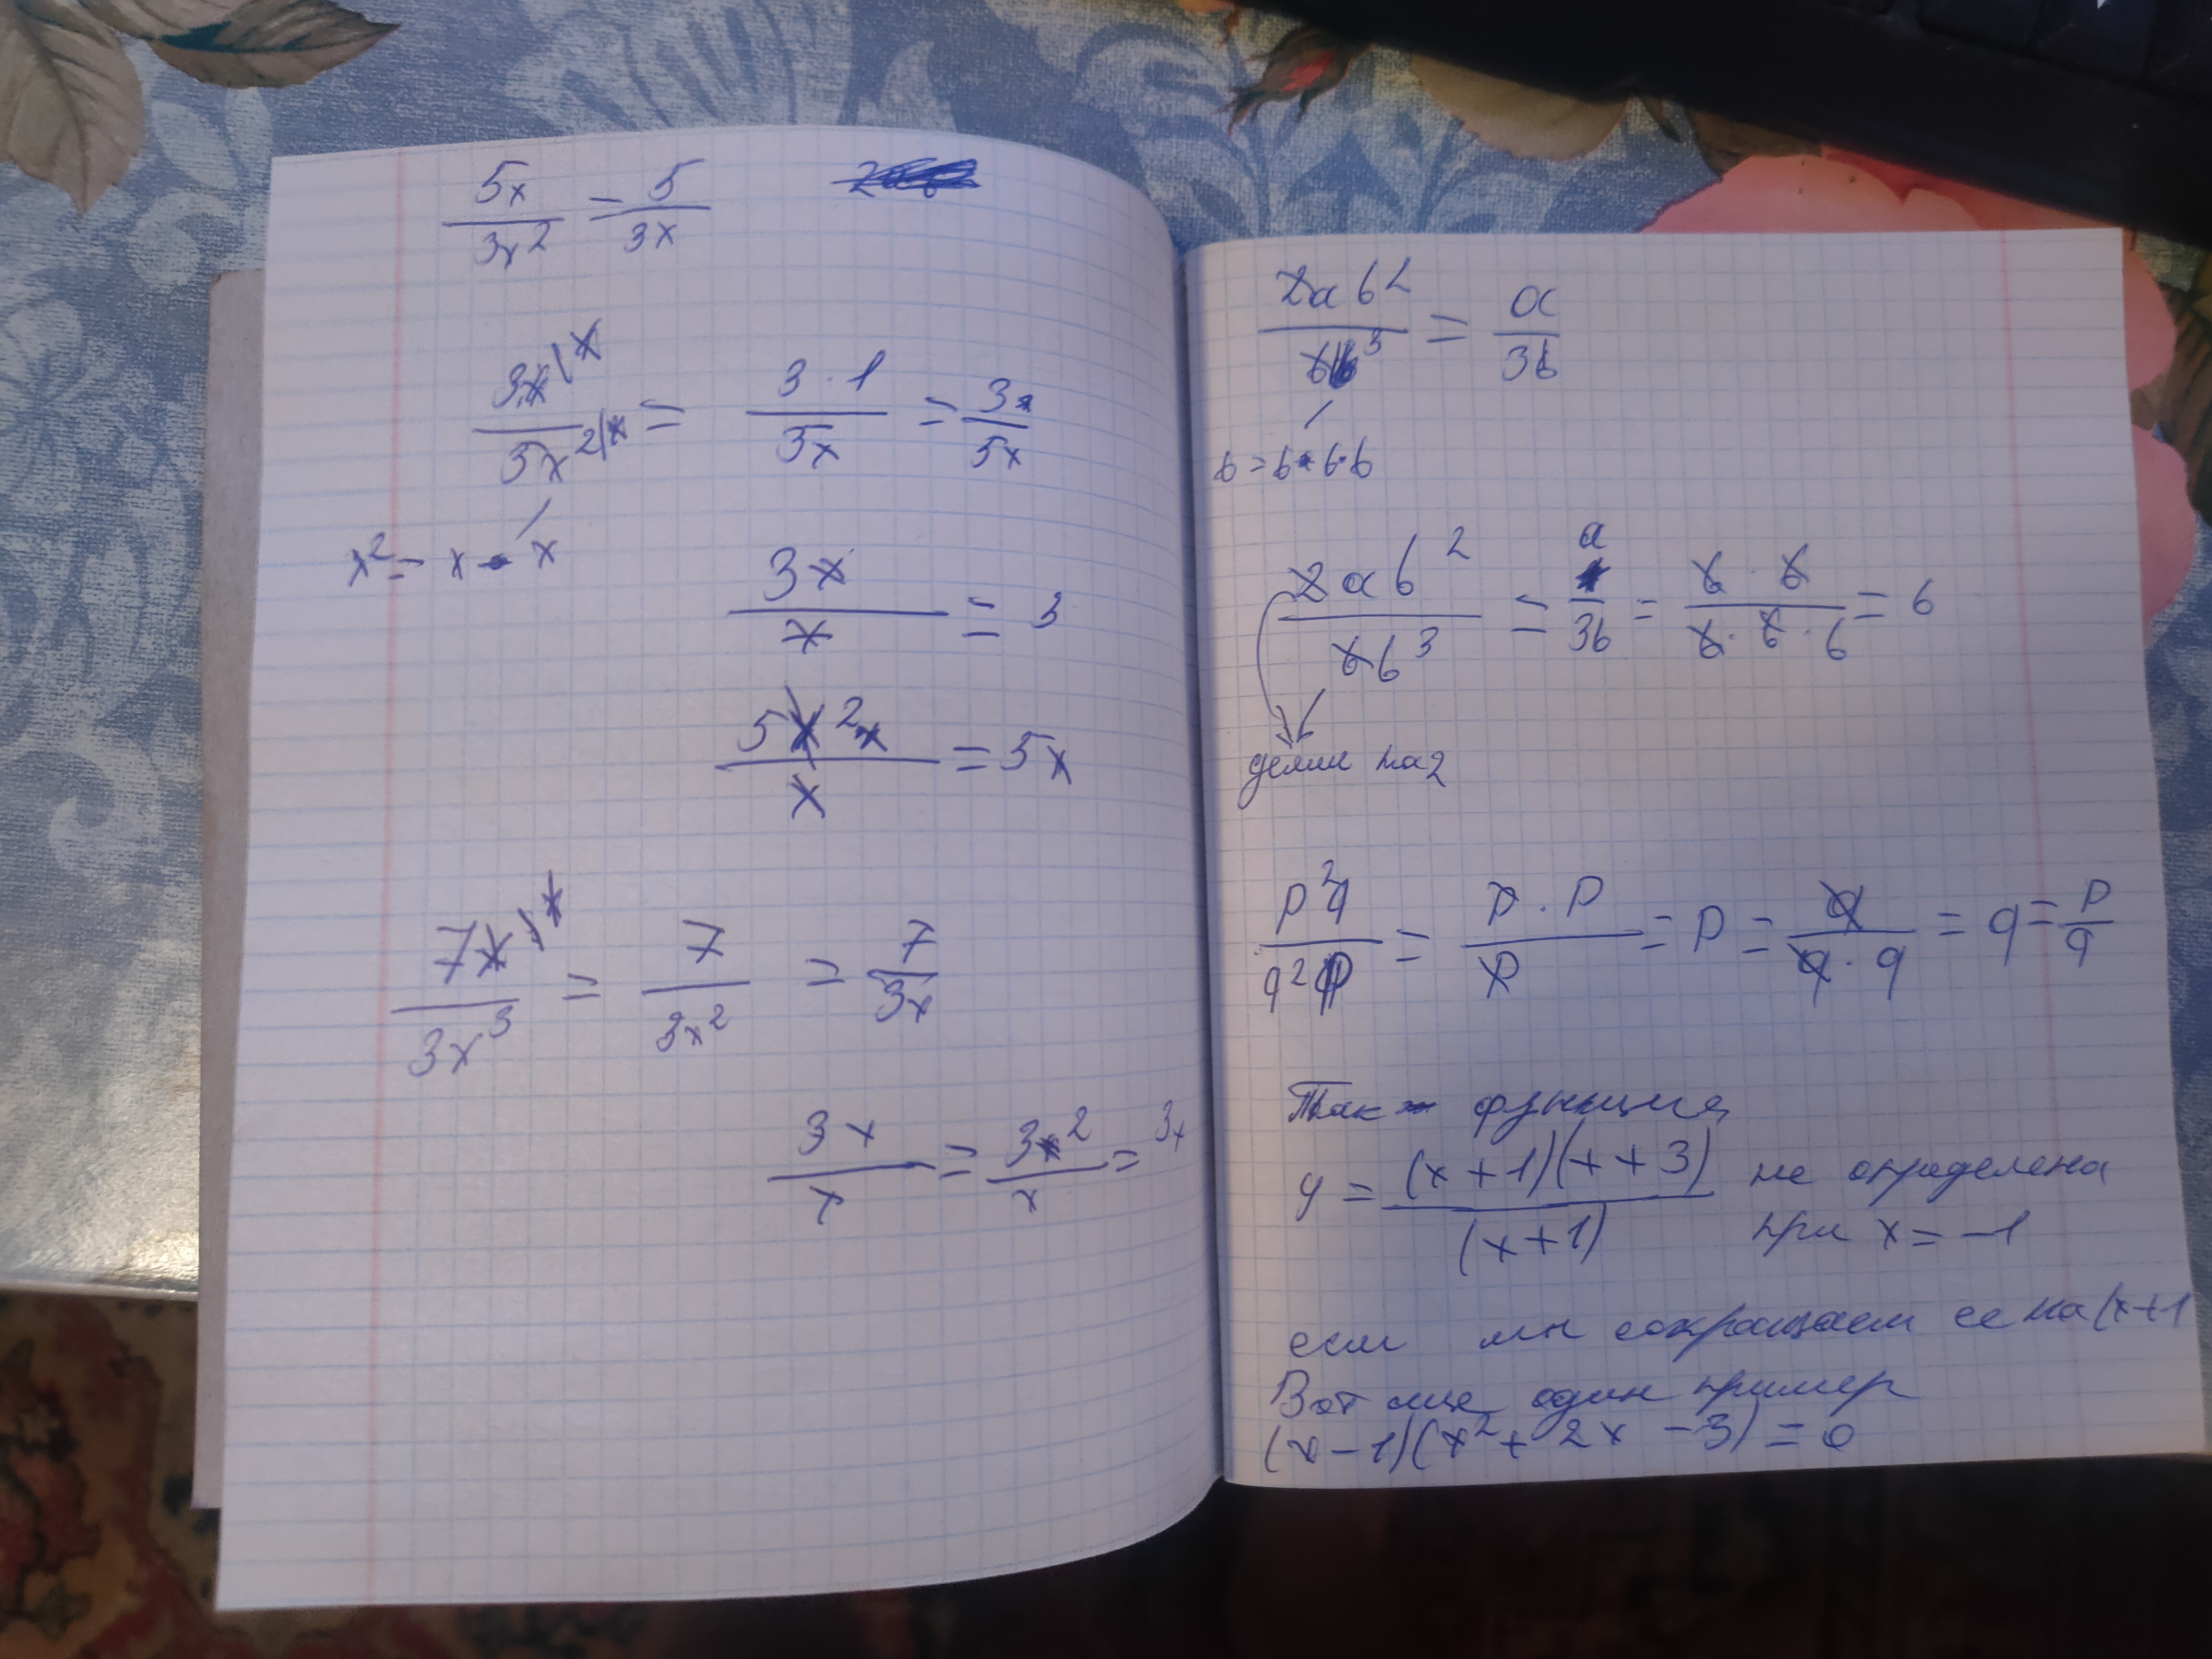 5x/3x² = 5/3x
3x|x / 5x²|x = 3·1/5x = 3/5x
x² = x · x
3x/x = 3
5x²x/x = 5x
7x|x / 3x³ = 7/3x² = 7/3x
3x/x = 3x²/x = 3x
2ab²/6b³ = a/3b
b = b·b·b
2ab²/6b³ = a/3b = b·b/b·b·b = b
делим на 2
p²q/q²p = p·p/p = p = q/q·q = q = p/q
Так функция
y = (x+1)(x+3)/(x+1) не определена
при x = -1
если мы сокращаем ее на (x+1
Вот еще один пример
(x-1)(x²+2x-3)=0